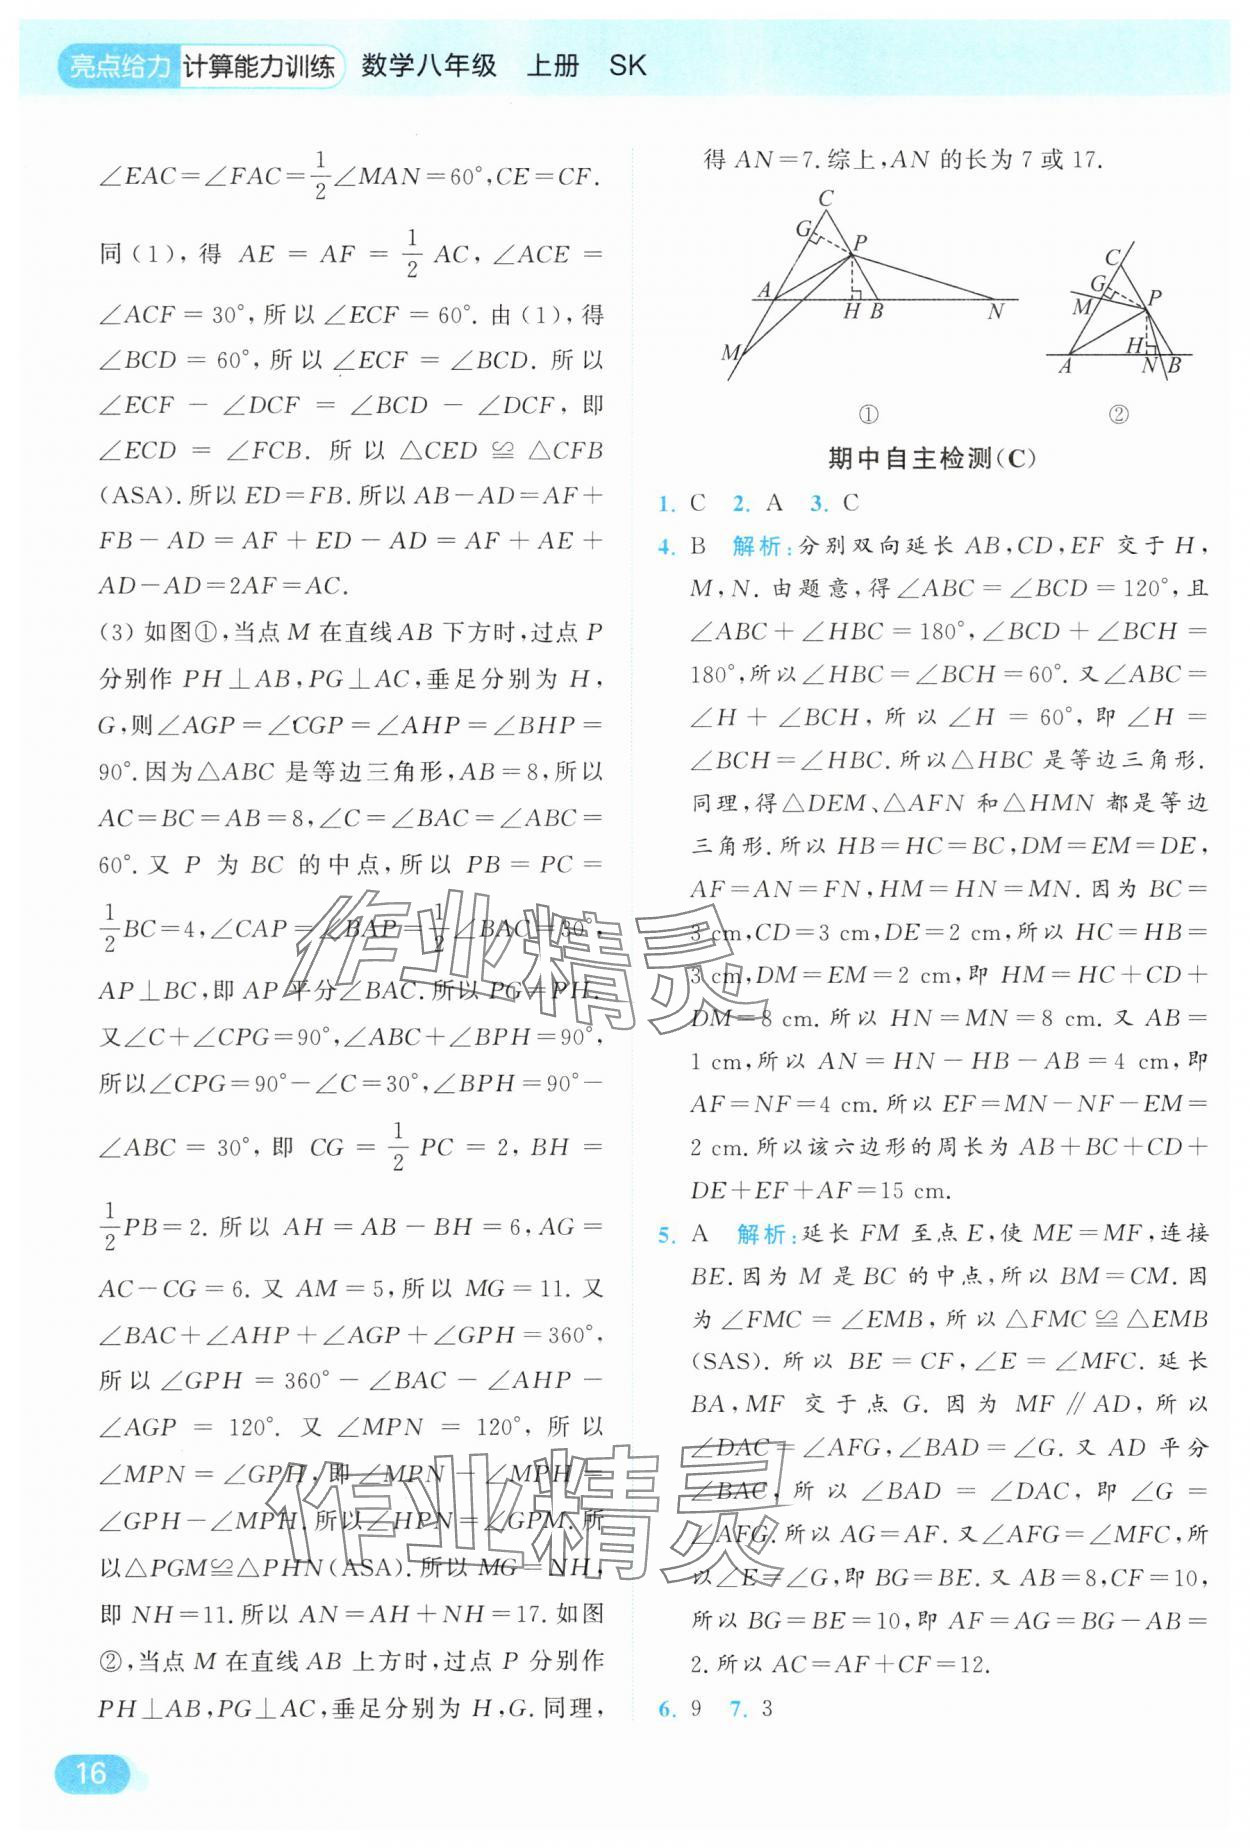 亮点给力 计算能力训练 数学八年级 上册 SK
∠EAC=∠FAC=1/2∠MAN=60°,CE=CF.
同(1),得 AE=AF=1/2AC,∠ACE=
∠ACF=30°,所以∠ECF=60°.由(1),得
∠BCD=60°,所以∠ECF=∠BCD.所以
∠ECF-∠DCF=∠BCD-∠DCF,即
∠ECD=∠FCB.所以△CED≌△CFB
(ASA).所以 ED=FB.所以 AB-AD=AF+
FB-AD=AF+ED-AD=AF+AE+
AD-AD=2AF=AC.
(3) 如图①,当点 M 在直线 AB 下方时,过点 P
分别作 PH⊥AB,PG⊥AC,垂足分别为 H,
G,则∠AGP=∠CGP=∠AHP=∠BHP=
90°.因为△ABC 是等边三角形,AB=8,所以
AC=BC=AB=8,∠C=∠BAC=∠ABC=
60°.又 P 为 BC 的中点,所以 PB=PC=
1/2BC=4,∠CAP=∠BAP=1/2∠BAC=30°,
AP⊥BC,即 AP 平分∠BAC.所以 PG=PH.
又∠C+∠CPG=90°,∠ABC+∠BPH=90°,
所以∠CPG=90°-∠C=30°,∠BPH=90°-
∠ABC=30°,即 CG=1/2PC=2,BH=
1/2PB=2.所以 AH=AB-BH=6,AG=
AC-CG=6.又 AM=5,所以 MG=11.又
∠BAC+∠AHP+∠AGP+∠GPH=360°,
所以∠GPH=360°-∠BAC-∠AHP-
∠AGP=120°.又∠MPN=120°,所以
∠MPN=∠GPH,即∠MPN-∠MPH=
∠GPH-∠MPH.所以∠HPN=∠GPM.所
以△PGM≌△PHN(ASA).所以 MG=NH,
即 NH=11.所以 AN=AH+NH=17.如图
②,当点 M 在直线 AB 上方时,过点 P 分别作
PH⊥AB,PG⊥AC,垂足分别为 H,G.同理,
16
得 AN=7.综上,AN 的长为 7 或 17.
C
G
P
A
H B
N
M
①
C
G
M
P
H
A
N B
②
期中自主检测(C)
1. C 2. A 3. C
4. B 解析:分别双向延长 AB,CD,EF 交于 H,
M,N.由题意,得∠ABC=∠BCD=120°,且
∠ABC+∠HBC=180°,∠BCD+∠BCH=
180°,所以∠HBC=∠BCH=60°.又∠ABC=
∠H+∠BCH,所以∠H=60°,即∠H=
∠BCH=∠HBC.所以△HBC 是等边三角形.
同理,得△DEM、△AFN 和△HMN 都是等边
三角形.所以 HB=HC=BC,DM=EM=DE,
AF=AN=FN,HM=HN=MN.因为 BC=
3 cm,CD=3 cm,DE=2 cm,所以 HC=HB=
3 cm,DM=EM=2 cm,即 HM=HC+CD+
DM=8 cm.所以 HN=MN=8 cm.又 AB=
1 cm,所以 AN=HN-HB-AB=4 cm,即
AF=NF=4 cm.所以 EF=MN-NF-EM=
2 cm.所以该六边形的周长为 AB+BC+CD+
DE+EF+AF=15 cm.
5. A 解析:延长 FM 至点 E,使 ME=MF,连接
BE.因为 M 是 BC 的中点,所以 BM=CM.因
为∠FMC=∠EMB,所以△FMC≌△EMB
(SAS).所以 BE=CF,∠E=∠MFC.延长
BA,MF 交于点 G.因为 MF∥AD,所以
∠DAC=∠AFG,∠BAD=∠G.又 AD 平分
∠BAC,所以∠BAD=∠DAC,即∠G=
∠AFG.所以 AG=AF.又∠AFG=∠MFC,所
以∠E=∠G,即 BG=BE.又 AB=8,CF=10,
所以 BG=BE=10,即 AF=AG=BG-AB=
2.所以 AC=AF+CF=12.
6. 9 7. 3
作业精灵
作业精灵